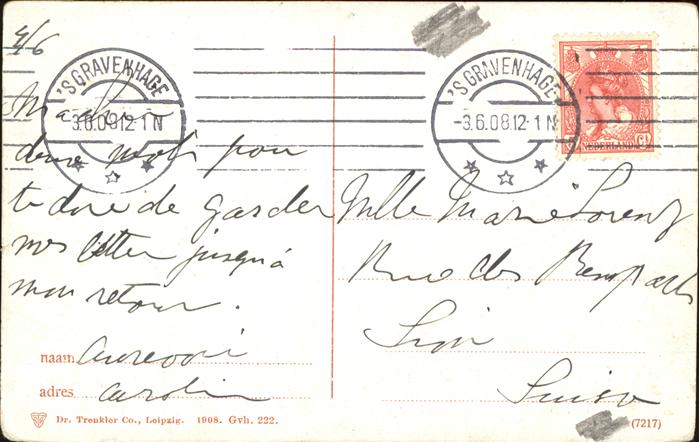 4/6
'S GRAVENHAGE
-3.6.08.12-1 N
'S GRAVENHAGE
-3.6.08.12-1 N
NEDERLAND
deux mots pour
te dire de garder
mes lettres jusqu'à
mon retour.
Mlle Marie Lorenz
Rue des Remparts
Sion
Suisse
naam
adres
Dr. Trenkler Co., Leipzig. 1908. Gvh. 222.
(7217)